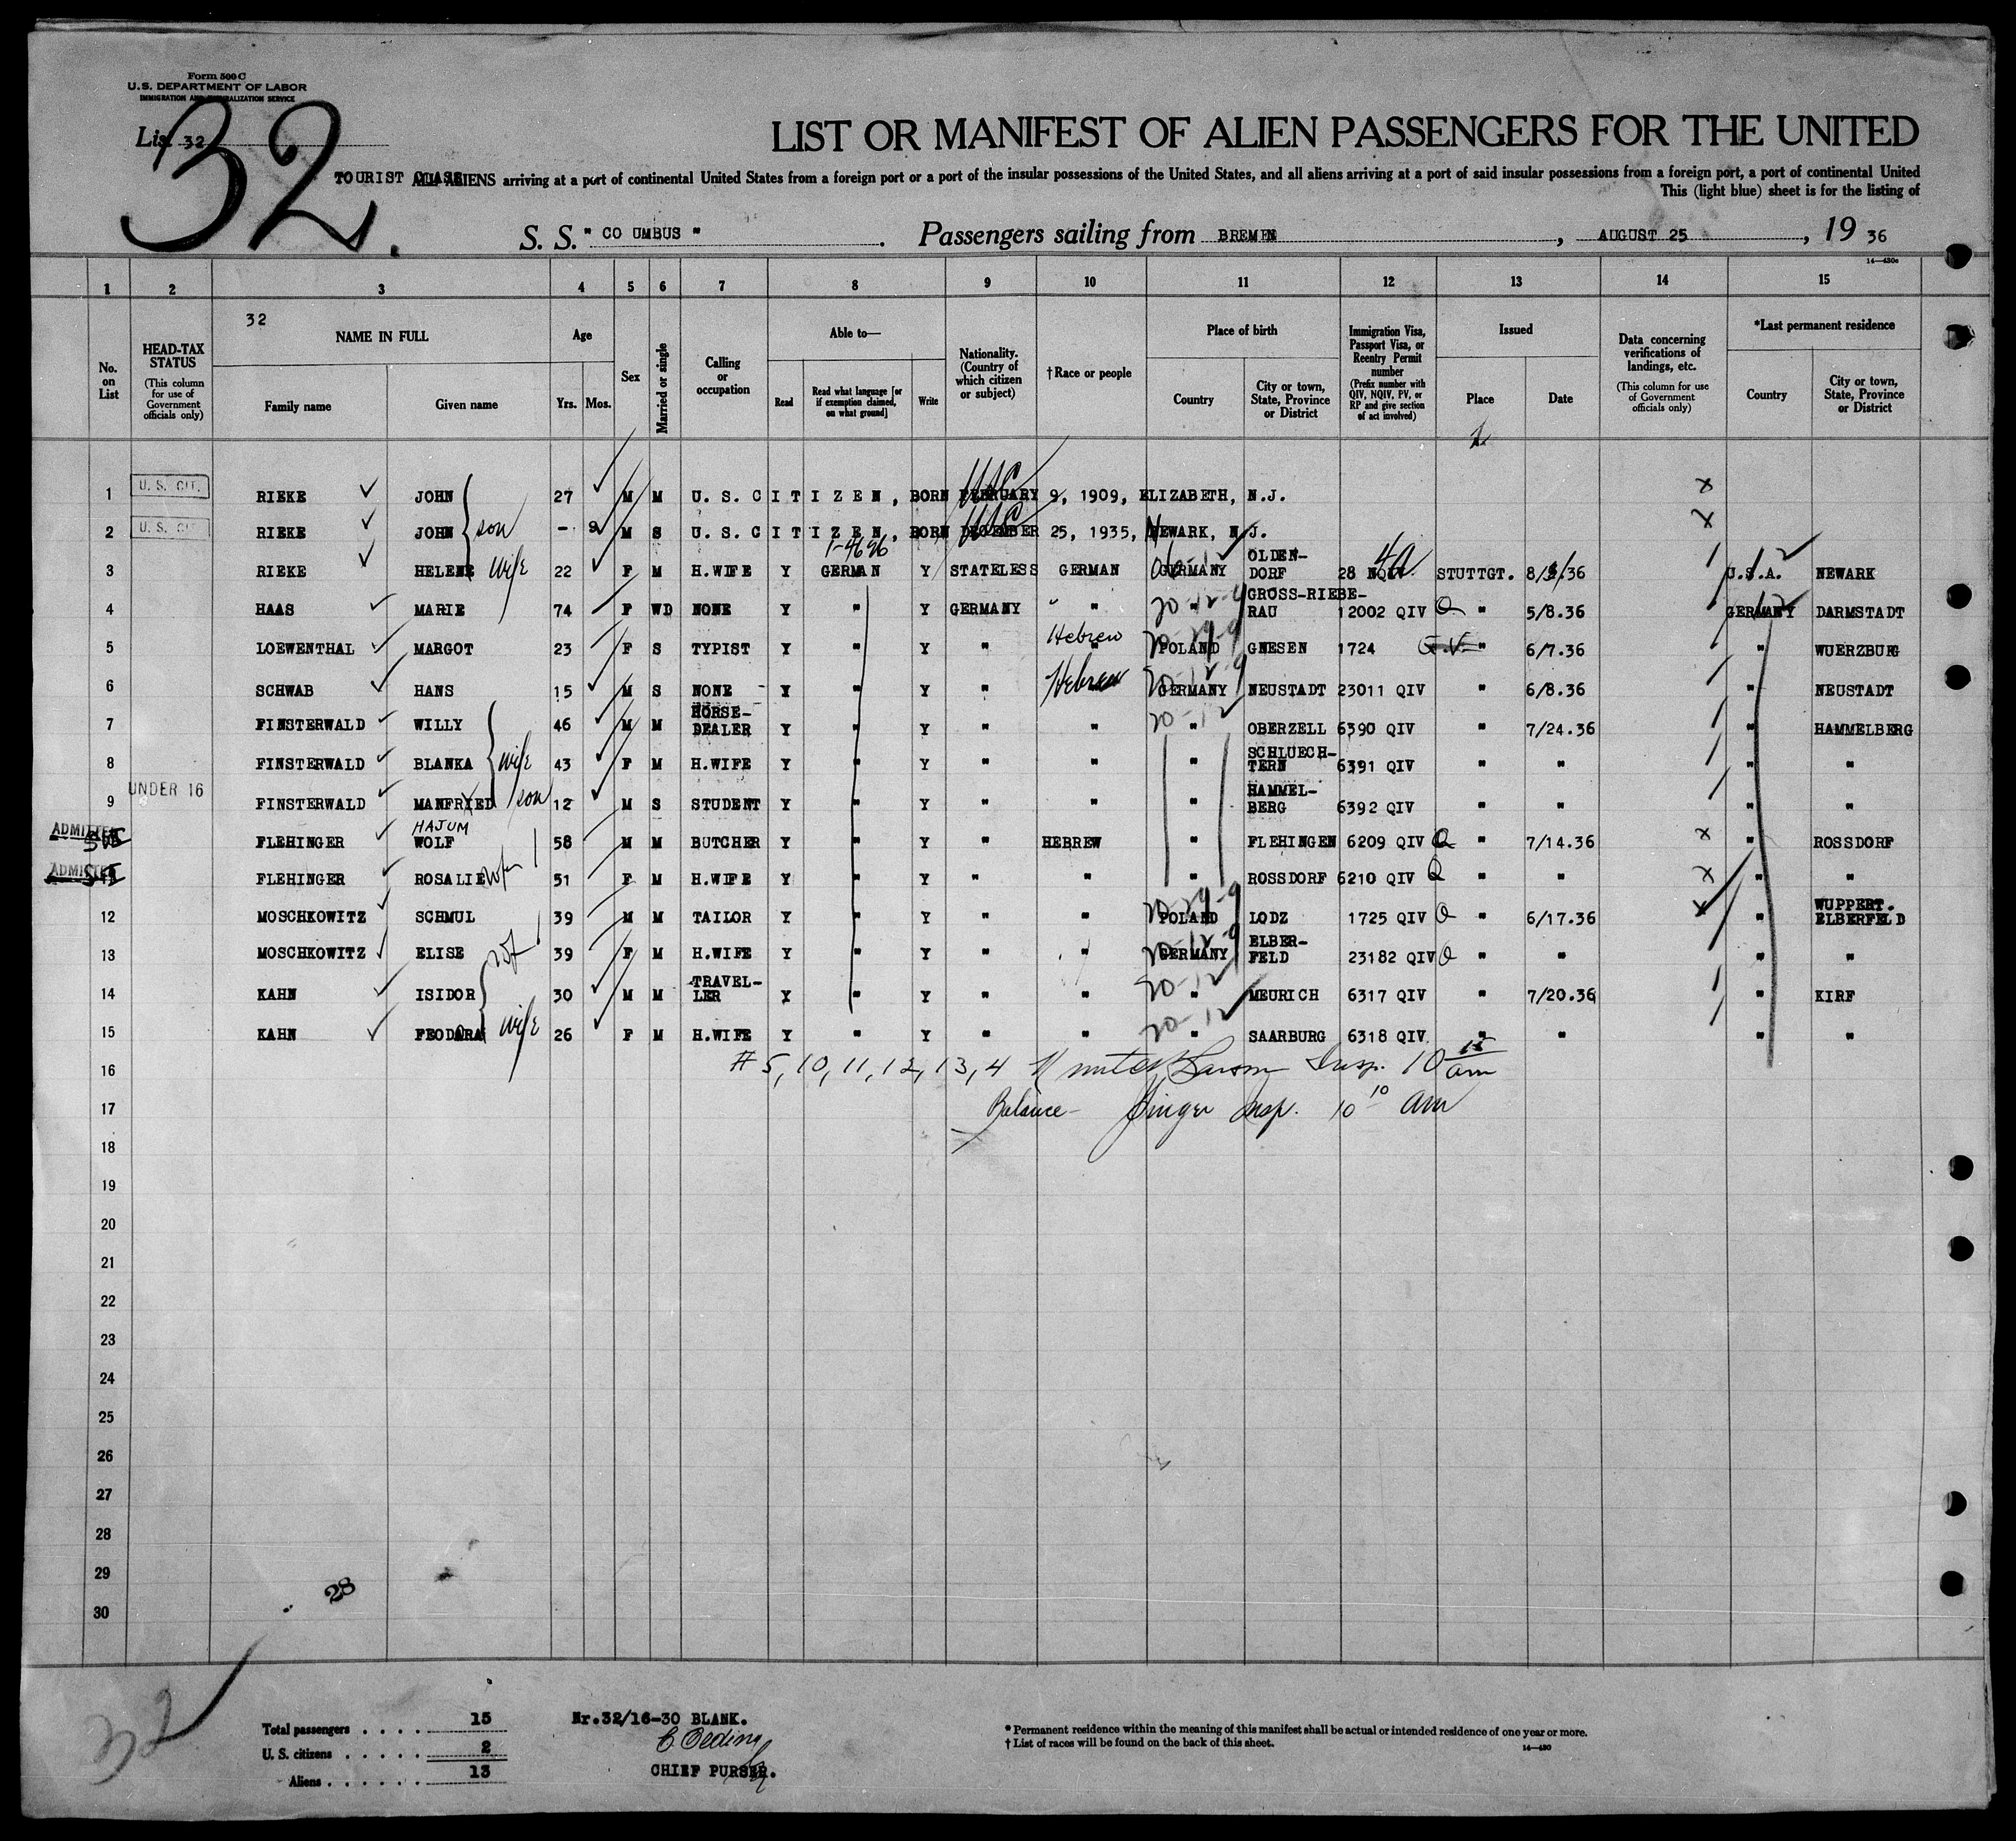 Form 500 C
U.S. DEPARTMENT OF LABOR
IMMIGRATION AND NATURALIZATION SERVICE
List 32
32.
LIST OR MANIFEST OF ALIEN PASSENGERS FOR THE UNITED
TOURIST CLASS ALL ALIENS arriving at a port of continental United States from a foreign port or a port of the insular possessions of the United States, and all aliens arriving at a port of said insular possessions from a foreign port, a port of continental United
This (light blue) sheet is for the listing of
S. S. " CO UMBUS " . Passengers sailing from BREMEN , AUGUST 25 , 19 36
14—430c
1 2 3 4 5 6 7 8 9 10 11 12 13 14 15
No. on List
HEAD-TAX STATUS (This column for use of Government officials only)
32
NAME IN FULL
Family name
Given name
Age
Yrs. Mos.
Sex
Married or single
Calling or occupation
Able to—
Read
Read what language [or if exemption claimed, on what ground]
Write
Nationality. (Country of which citizen or subject)
†Race or people
Place of birth
Country
City or town, State, Province or District
Immigration Visa, Passport Visa, or Reentry Permit number (Prefix number with QIV, NQIV, PV, or RP and give section of act involved)
Issued
Place
Date
Data concerning verifications of landings, etc. (This column for use of Government officials only)
*Last permanent residence
Country
City or town, State, Province or District
1 U. S. CIT. RIEKE JOHN 27 M M U. S. C I T I Z E N, BORN FEBRUARY 9, 1909, ELIZABETH, N.J. USC x
2 U. S. CIT RIEKE JOHN son - 9 M S U. S. C I T I Z E N, BORN DECEMBER 25, 1935, NEWARK, N.J. USC x
1-4696
3 RIEKE HELENE wife 22 F M H.WIFE Y GERMAN Y STATELESS GERMAN GERMANY OLDEN-DORF 28 NQIV 4a STUTTGT. 8/8/36 U.S.A. NEWARK
4 HAAS MARIE 74 F WD NONE Y " Y GERMANY " " 20-12-9 GROSS-RIEBE-RAU 12002 QIV " 5/8.36 GERMANY DARMSTADT
5 LOEWENTHAL MARGOT 23 F S TYPIST Y " Y " Hebrew POLAND GNESEN 1724 " 6/7.36 " WUERZBURG
6 SCHWAB HANS 15 M S NONE Y " Y " Hebrew GERMANY 20-12-9 NEUSTADT 23011 QIV " 6/8.36 " NEUSTADT
7 FINSTERWALD WILLY 46 M M HORSE-DEALER Y " Y " " " 20-12 OBERZELL 6390 QIV " 7/24.36 " HAMMELBERG
8 FINSTERWALD BLANKA wife 43 F M H.WIFE Y " Y " " SCHLUECH-TERN 6391 QIV " " " "
9 UNDER 16 FINSTERWALD MANFRIED son 12 M S STUDENT Y " Y " " HAMMEL-BERG 6392 QIV " " " "
ADMITTED FLEHINGER HAJUM WOLF 58 M M BUTCHER Y " Y " HEBREW " FLEHINGEN 6209 QIV " 7/14.36 x " ROSSDORF
ADMITTED FLEHINGER ROSALIE wife 51 F M H.WIFE Y " Y " " " ROSSDORF 6210 QIV " " x " "
12 MOSCHKOWITZ SCHMUL 39 M M TAILOR Y " Y " " POLAND LODZ 1725 QIV " 6/17.36 x " WUPPERT. ELBERFELD
13 MOSCHKOWITZ ELISE 39 F M H.WIFE Y " Y " " GERMANY 20-12-9 ELBER-FELD 23182 QIV " " " "
14 KAHN ISIDOR 30 M M TRAVEL-LER Y " Y " " " 20-12 MEURICH 6317 QIV " 7/20.36 " KIRF
15 KAHN FEODORA wife 26 F M H.WIFE Y " Y " " " 20-12 SAARBURG 6318 QIV " " " "
16 # 5, 10, 11, 12, 13, 4 Insp. 10 15 am
17 Balance - Insp. 10 10 am
18
19
20
21
22
23
24
25
26
27
28
29
30
28
32
Total passengers . . . . . 15
U. S. citizens . . . . . 2
Aliens . . . . . . 13
Nr.32/16-30 BLANK.
CHIEF PURSER.
* Permanent residence within the meaning of this manifest shall be actual or intended residence of one year or more.
† List of races will be found on the back of this sheet.
14—430